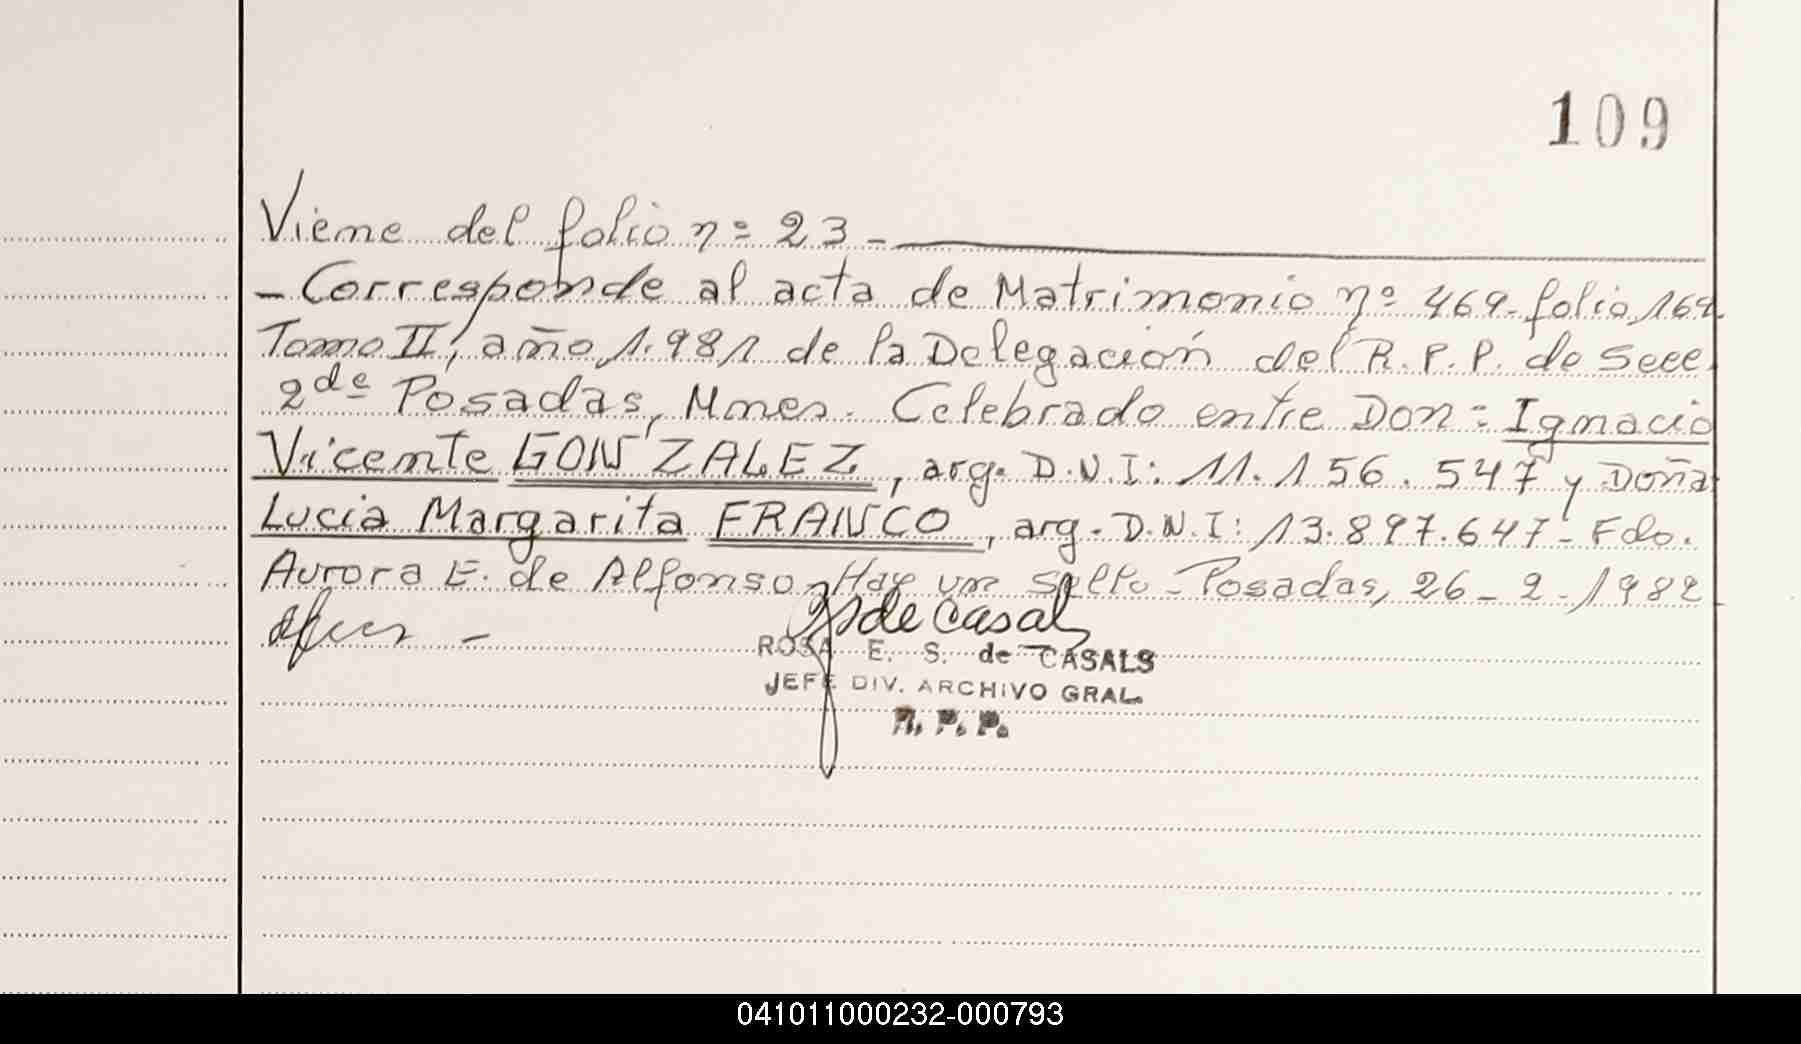 109
Viene del folio nº 23 -
- Corresponde al acta de Matrimonio nº 469. folio 169.
Tomo II, año 1.981 de la Delegación del R.P.P. de Secc.
2da Posadas, Mnes. Celebrado entre Don: Ignacio
Vicente GONZALEZ, arg. D.N.I: 11.156.547 y Doña
Lucia Margarita FRANCO, arg. D.N.I: 13.897.647 - Fdo.
Aurora E. de Alfonso - Hay un sello - Posadas, 26 - 2 - 1982
de Casals
ROSA E. S. de CASALS
JEFE DIV. ARCHIVO GRAL.
R. P. P.
041011000232-000793